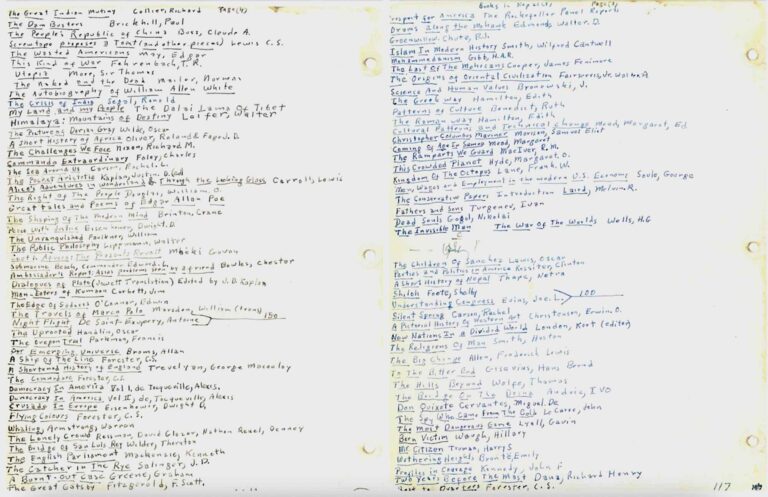 The Great Indian Mutiny Collier, Richard Page (4)
The Dam Busters Brickhill, Paul
The People's Republic of China Buss, Claude A.
Screwtape proposes a Toast (and other pieces) Lewis C.S.
The Wasted Americans May, Edgar
This Kind of War Fehrenbach, T.R.
Utopia More, Sir Thomas
The Naked and the Dead Mailer, Norman
The Autobiography of William Allen White
The Crisis of India Segal, Ronald
My Land and my People The Dalai Lama of Tibet
Himalaya: Mountains of Destiny Laifer, Walter
The Picture of Dorian Gray Wilde, Oscar
A Short History of Africa Oliver, Roland & Fage, J.D.
The Challenges We Face Nixon, Richard M.
Commando Extraordinary Foley, Charles
The Sea Around Us Carson, Rachel L.
The Pocket Aristotle Kaplan, Justin D. (ed)
Alice's Adventures in Wonderland & Through the Looking Glass Carroll, Lewis
The Right of The People Douglas, William, O.
Great tales and Poems of Edgar Allan Poe
The Shaping of The Modern Mind Brinton, Crane
Peace with Justice Eisenhower, Dwight D.
The Unvanquished Faulkner, William
The Public Philosophy Lippmann, Walter
South Africa: The Peasants Revolt Mbeki Govan
Submarine Beach, Commander Edward L.
Ambassador's Report: Asian problems seen by a friend Bowles, Chester
Dialogues of Plato (Jowett Translation) Edited by J.D. Kaplan
Man-Eaters of Kumaon Corbett, Jim
The Edge of Sadness O'Connor, Edwin
The Travels of Marco Polo Marsden, William (trans)
Night Flight De Saint-Exupery, Antoine 150
The Uprooted Handlin, Oscar
The Oregon Trail Parkman, Francis
Our Emerging Universe Broms, Allan
A Ship Of The Line Forester, C.S.
A Shortened History of England Trevelyan, George Macaulay
The Commodore Forester, C.S.
Democracy In America Vol I, de Tocqueville, Alexis.
Democracy In America Vol II, de, Tocqueville, Alexis
Crusade In Europe Eisenhower, Dwight D,
Flying Colours Forester, C.S.
Whaling, Armstrong, Warren
The Lonely Crowd Reisman, David Glazer, Nathan Rexel, Denney
The Bridge of San Luis Rey Wilder, Thornton
The English Parliament Mackenzie, Kenneth
The Catcher in The Rye Salinger, J.D.
A Burnt-Out Case Greene, Graham
The Great Gatsby Fitzgerald, F. Scott,
Books in Page(3)
Prospect for America The Rockefeller Panel Reports
Drums Along the Mohawk Edmonds, Walter D.
Greenwillow Chute, B.J.
Islam In Modern History Smith, Wilfred Cantwell
Mohammedanism Gibb, H.A.R.
The Last Of The Mohicans Cooper, James Fenimore
The Origins of Oriental Civilization Fairservis, Jr. Walter A
Science And Human Values Bronowski, J.
The Greek Way Hamilton, Edith
Patterns of Culture Benedict, Ruth
The Roman Way Hamilton, Edith
Cultural Patterns and Technical Change Mead, Margaret, Ed
Christopher Columbus Mariner Morison, Samuel Eliot
Coming of Age In Samoa Mead, Margaret
The Ramparts We Guard MacIver, R.M.
This Crowded Planet Hyde, Margaret O.
Kingdom Of The Octopus Lane, Frank, W.
Men, Wages and Employment in the modern U.S. Economy Soule, George
The Conservative Papers Introduction Laird, Melvin, R.
Fathers and Sons Turgenev, Ivan
Dead Souls Gogol, Nikolai
The Invisible Man The War Of The Worlds Wells, H.G
The Children Of Sanchez Lewis, Oscar
Parties and Politics in America Rossiter, Clinton
A Short History of Nepal Thapa, Netra
Shiloh Foote, Shelby
Understanding Congress Evins, Joe L. 100
Silent Spring Carson, Rachel
A Pictorial History of Western Art Christensen, Erwin. O.
New Nations In a Divided World London, Kurt (editor)
The Religions Of Man Smith, Huston
The Big Change Allen, Frederick Lewis
To The Bitter End Gisevius, Hans Bernd
The Hills Beyond Wolfe, Thomas
The Bridge On The Drina Andric, IVO
Don Quixote Cervantes, Miguel De
The Spy Who Came From The Cold Le Carre, John
The Most Dangerous Game Lyall, Gavin
Born Victim Waugh, Hillary
Mr. Citizen Truman, Harry S
Wuthering Heights Bronte, Emily
Profiles in Courage Kennedy, John F
Two Years Before The Mast Dana, Richard Henry
to Quarters Forester, C.S.
117